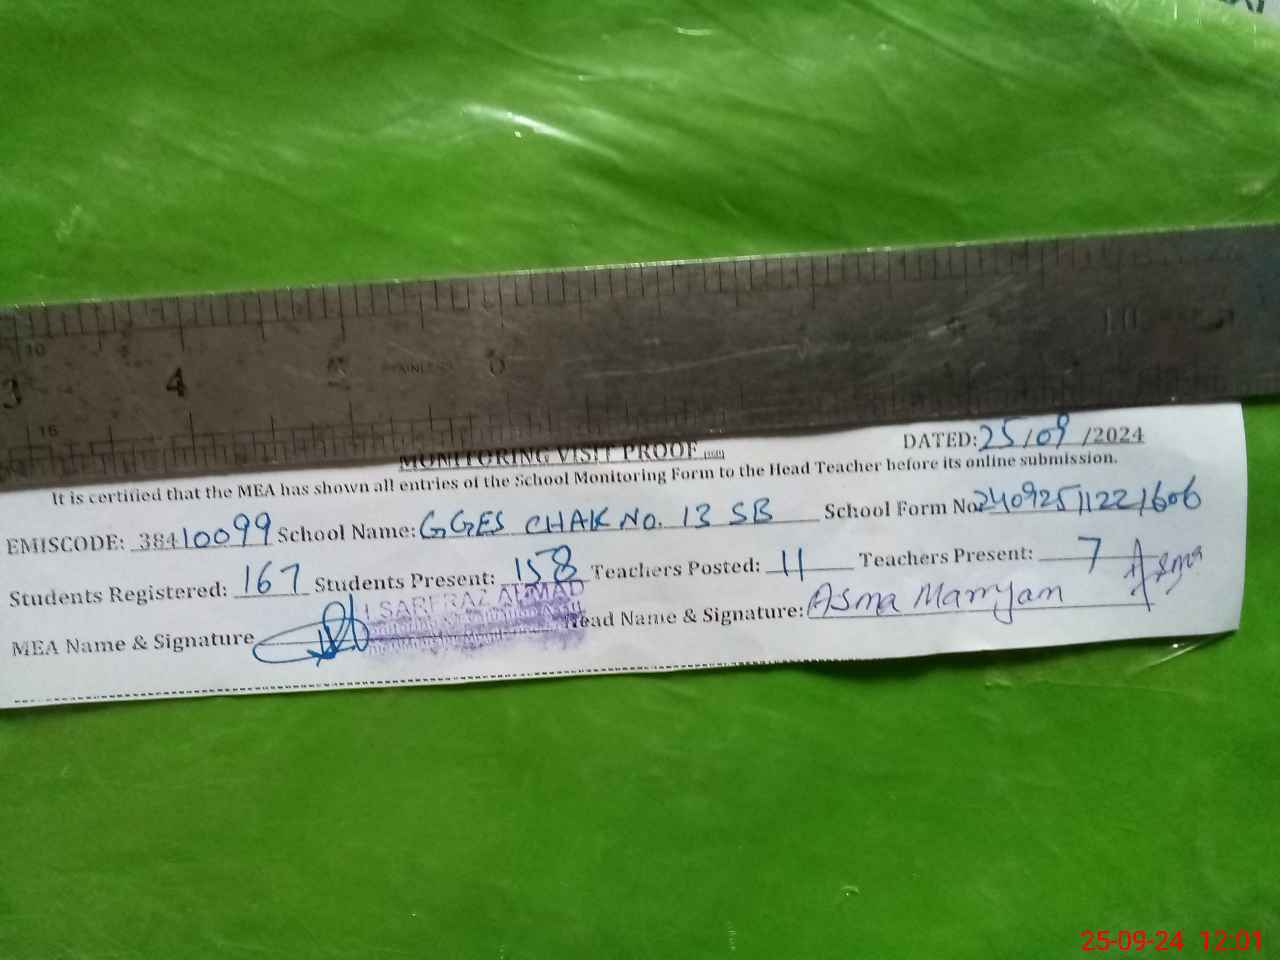 10
3
4
STAINLESS
10
15
MONITORING VISIT PROOF
DATED: 25/09/2024
It is certified that the MEA has shown all entries of the School Monitoring Form to the Head Teacher before its online submission.
EMISCODE: 38410099 School Name: GGES CHAK No. 13 SB School Form No. 24092511221606
Students Registered: 167 Students Present: 158 Teachers Posted: 11 Teachers Present: 7
MEA Name & Signature SARFRAZ AHMAD Head Name & Signature: Asma Marryam Asma
25-09-24 12:01